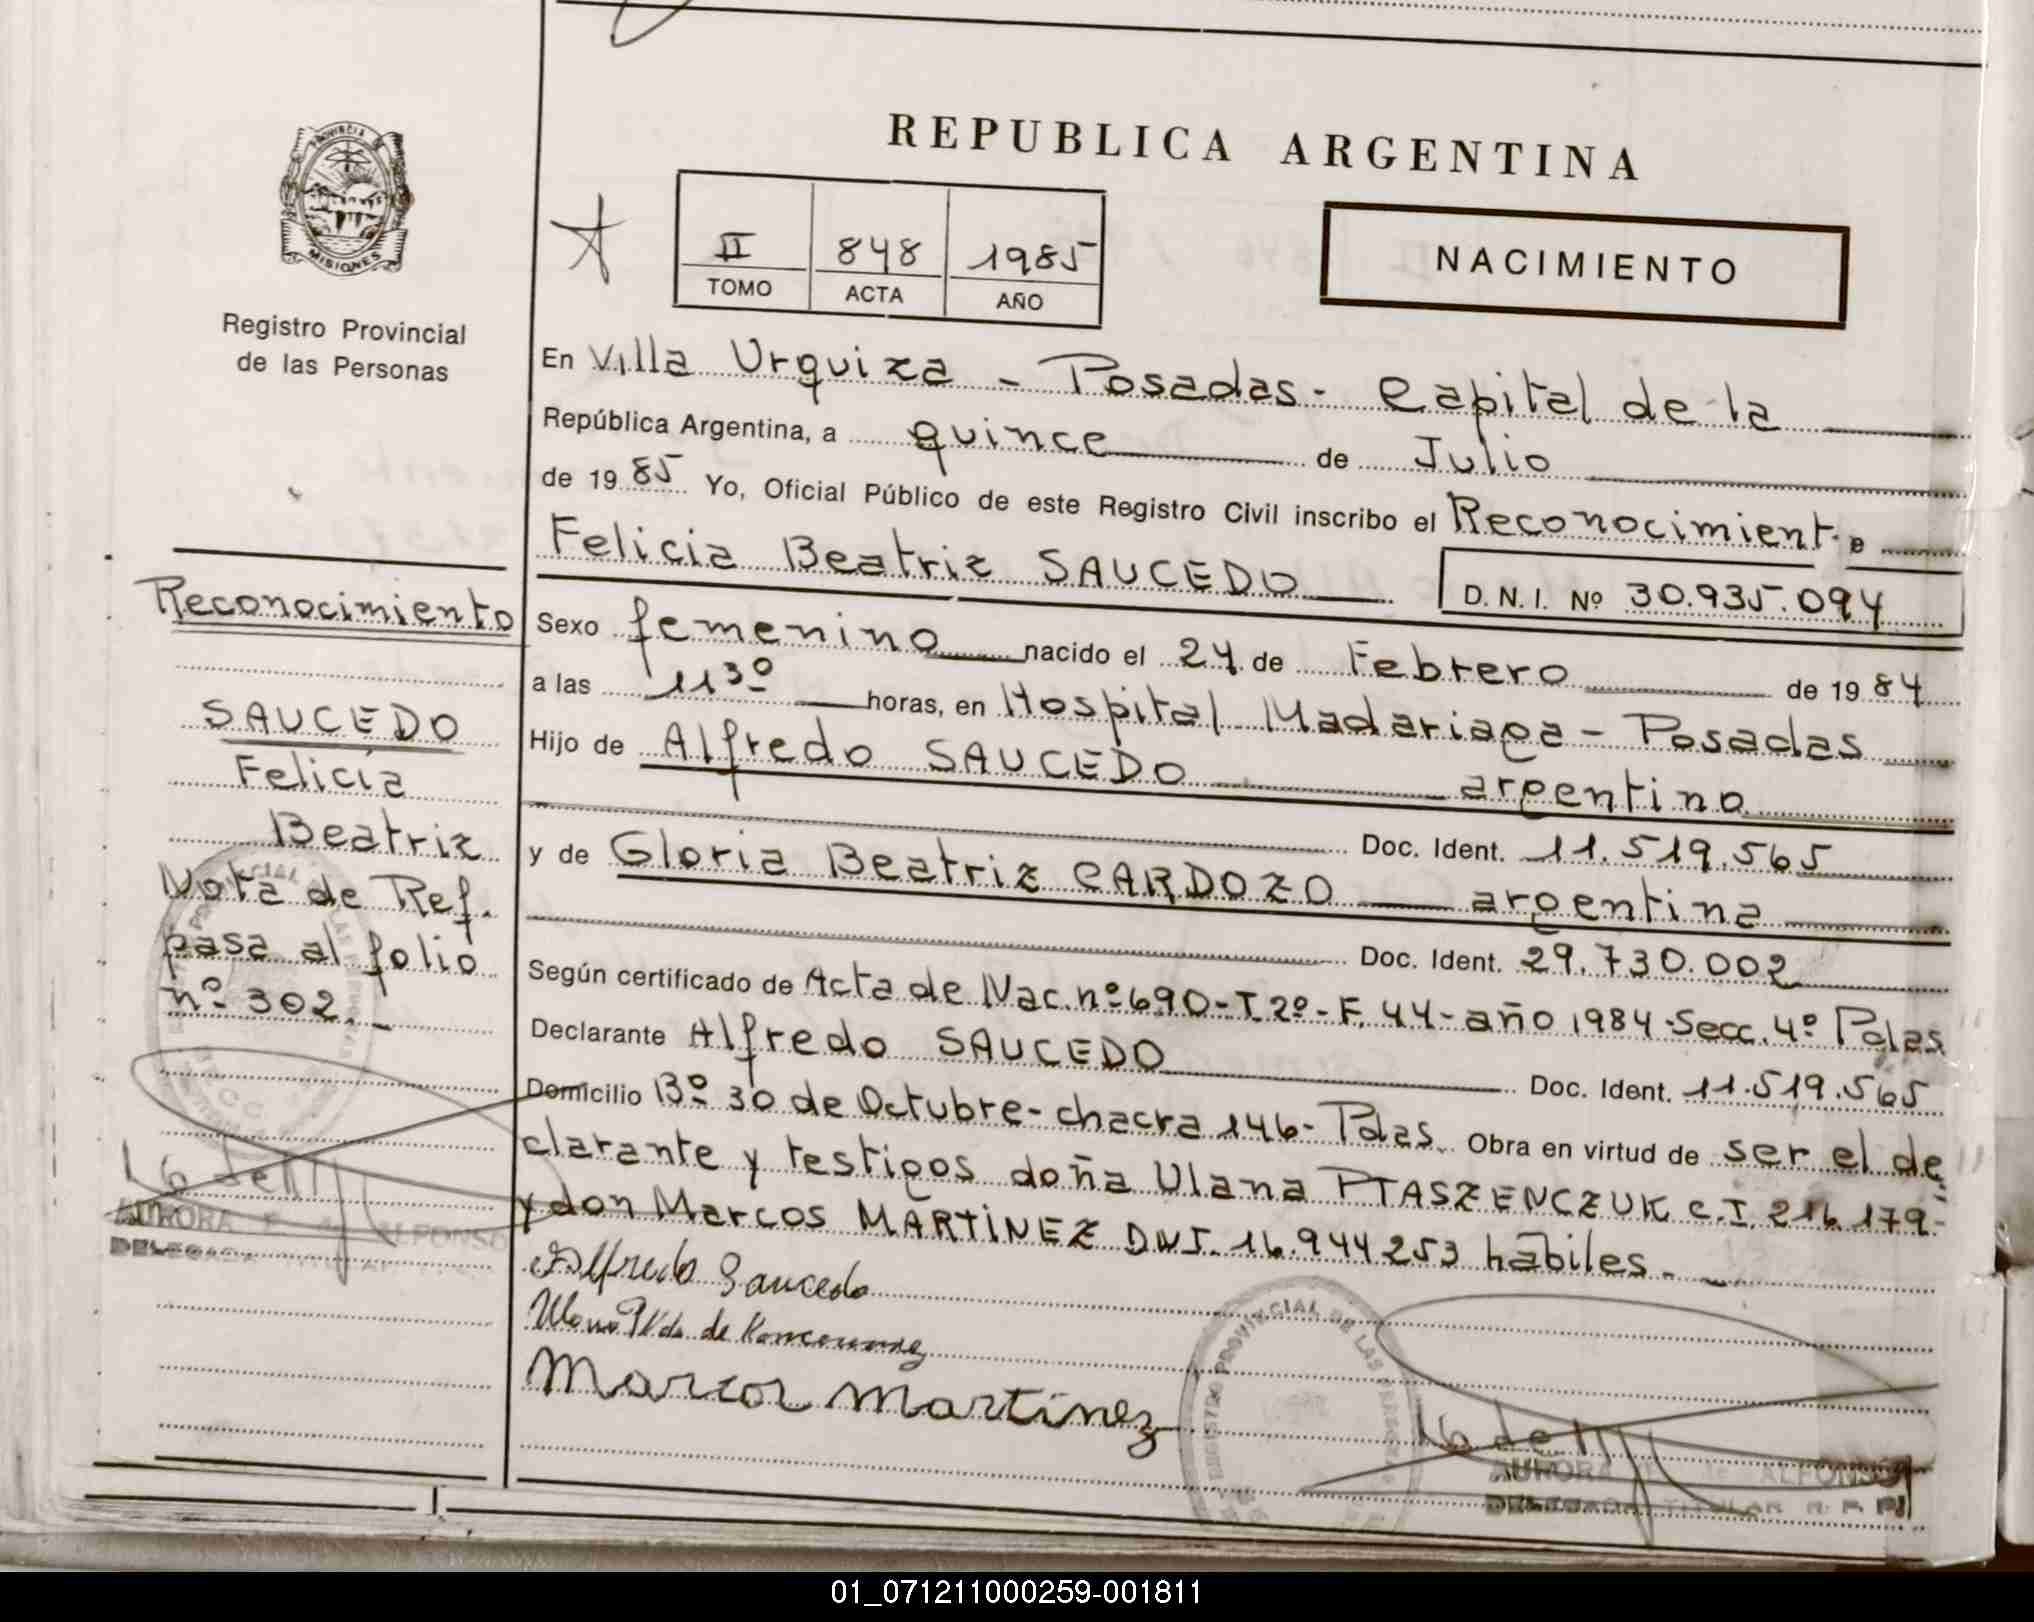 REPUBLICA ARGENTINA
PROVINCIA
MISIONES
Registro Provincial
de las Personas
II 848 1985
TOMO ACTA AÑO
NACIMIENTO
En Villa Urquiza - Posadas - Capital de la
República Argentina, a quince de Julio
de 1985 Yo, Oficial Público de este Registro Civil inscribo el Reconocimiento
Felicia Beatriz SAUCEDO D.N.I. Nº 30.935.094
Sexo femenino nacido el 24 de Febrero de 1984
a las 11 30 horas, en Hospital Madariaga - Posadas
Hijo de Alfredo SAUCEDO argentino
Doc. Ident. 11.519.565
y de Gloria Beatriz CARDOZO argentina
Doc. Ident. 29.730.002
Según certificado de Acta de Nac. nº 690-T. 2º-F. 44-año 1984-Secc. 4º Pdas
Declarante Alfredo SAUCEDO Doc. Ident. 11.519.565
Domicilio Bº 30 de Octubre- chacra 146- Pdas. Obra en virtud de ser el de
clarante y testigos doña Ulana PTASZENCZUK C.I. 216.179-
y don Marcos MARTINEZ DNI. 16.944253 hábiles.-
Alfredo Saucedo
Marcos Martinez
Reconocimiento
SAUCEDO
Felicia
Beatriz
Nota de Ref.
pasa al folio
nº 302.-
AURORA ALFONSO
DELEGADA TITULAR
REGISTRO PROVINCIAL DE LAS PERSONAS
AURORA de ALFONSO
DELEGADA TITULAR R. P. P.
01_071211000259-001811